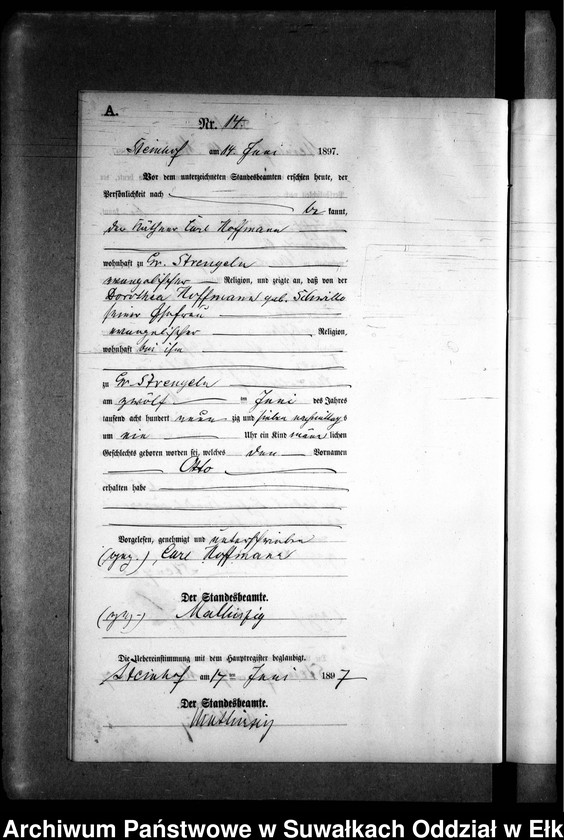 A.
Nr. 14.
Steinhof am 14. Juni 1897.
Vor dem unterzeichneten Standesbeamten erschien heute, der
Persönlichkeit nach
be kannt,
der Käthner Carl Hoffmann
wohnhaft zu Gr. Strengeln
evangelischer Religion, und zeigte an, daß von der
Dorothea Hoffmann geb.
seiner Ehefrau
evangelischer Religion,
wohnhaft bei ihm
zu Gr. Strengeln
am zwölf ten Juni des Jahres
tausend acht hundert neun zig und sieben nachmittags
um ein Uhr ein Kind männ lichen
Geschlechts geboren worden sei, welches den Vornamen
Otto
erhalten habe
Vorgelesen, genehmigt und unterschrieben
(gez.) Carl Hoffmann
Der Standesbeamte.
(gez.)
Die Uebereinstimmung mit dem Hauptregister beglaubigt.
Steinhof am 17 ten Juni 1897
Der Standesbeamte.
Archiwum Państwowe w Suwałkach Oddział w Ełk